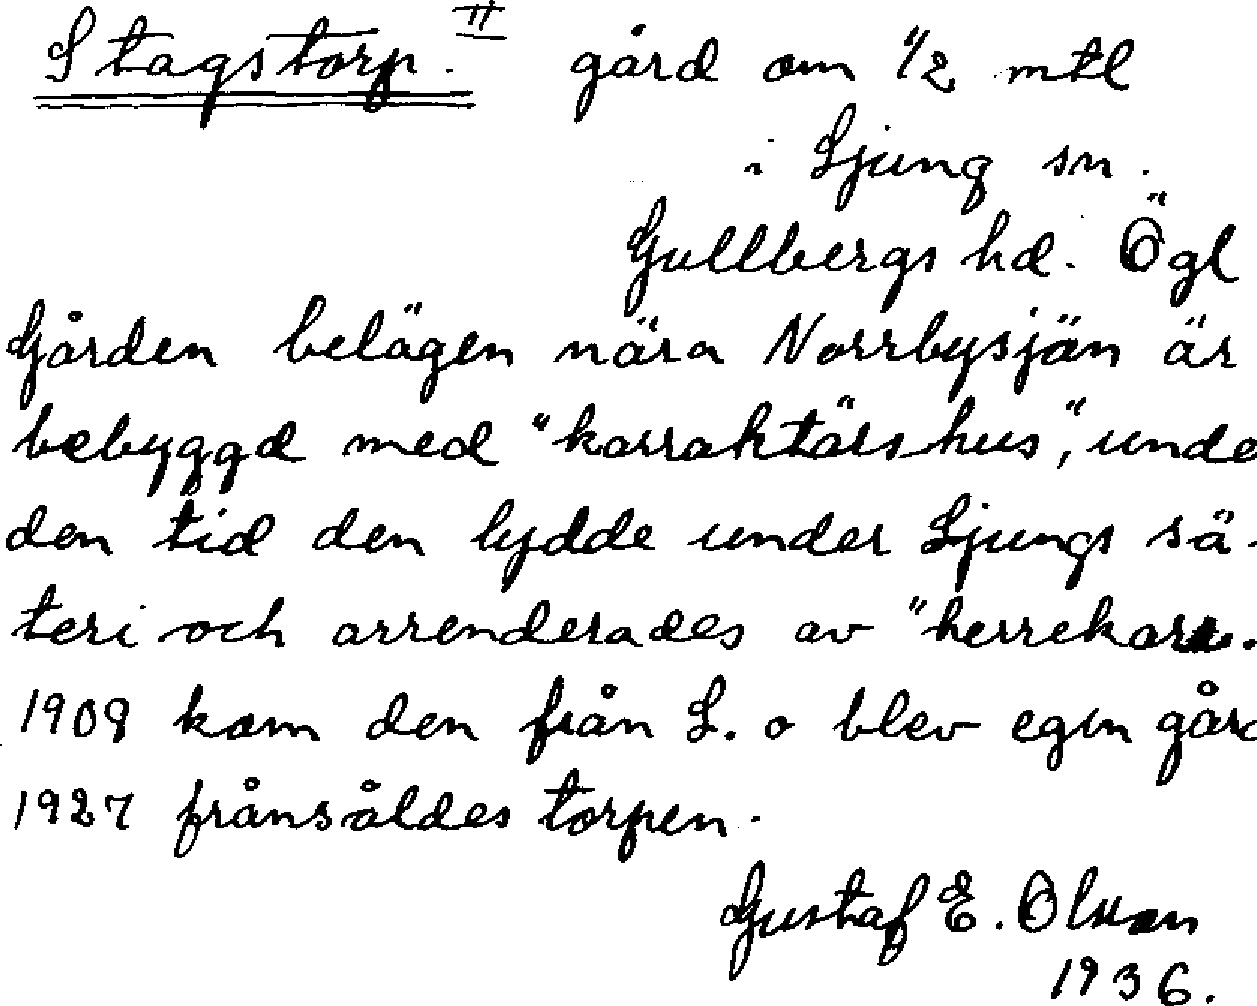 Stagstorp. II gård om 1/2 mtl
i Ljung sn.
Gullbergs hd. Ögl
Gården belägen nära Norrbysjön är
bebyggd med "karraktärshus", unde
den tid den lydde under Ljungs sä-
teri och arrenderades av "herrekarr.
1909 kom den från L. o blev egen går
1927 frånsåldes torpen.
Gustaf E. Olsson
1936.